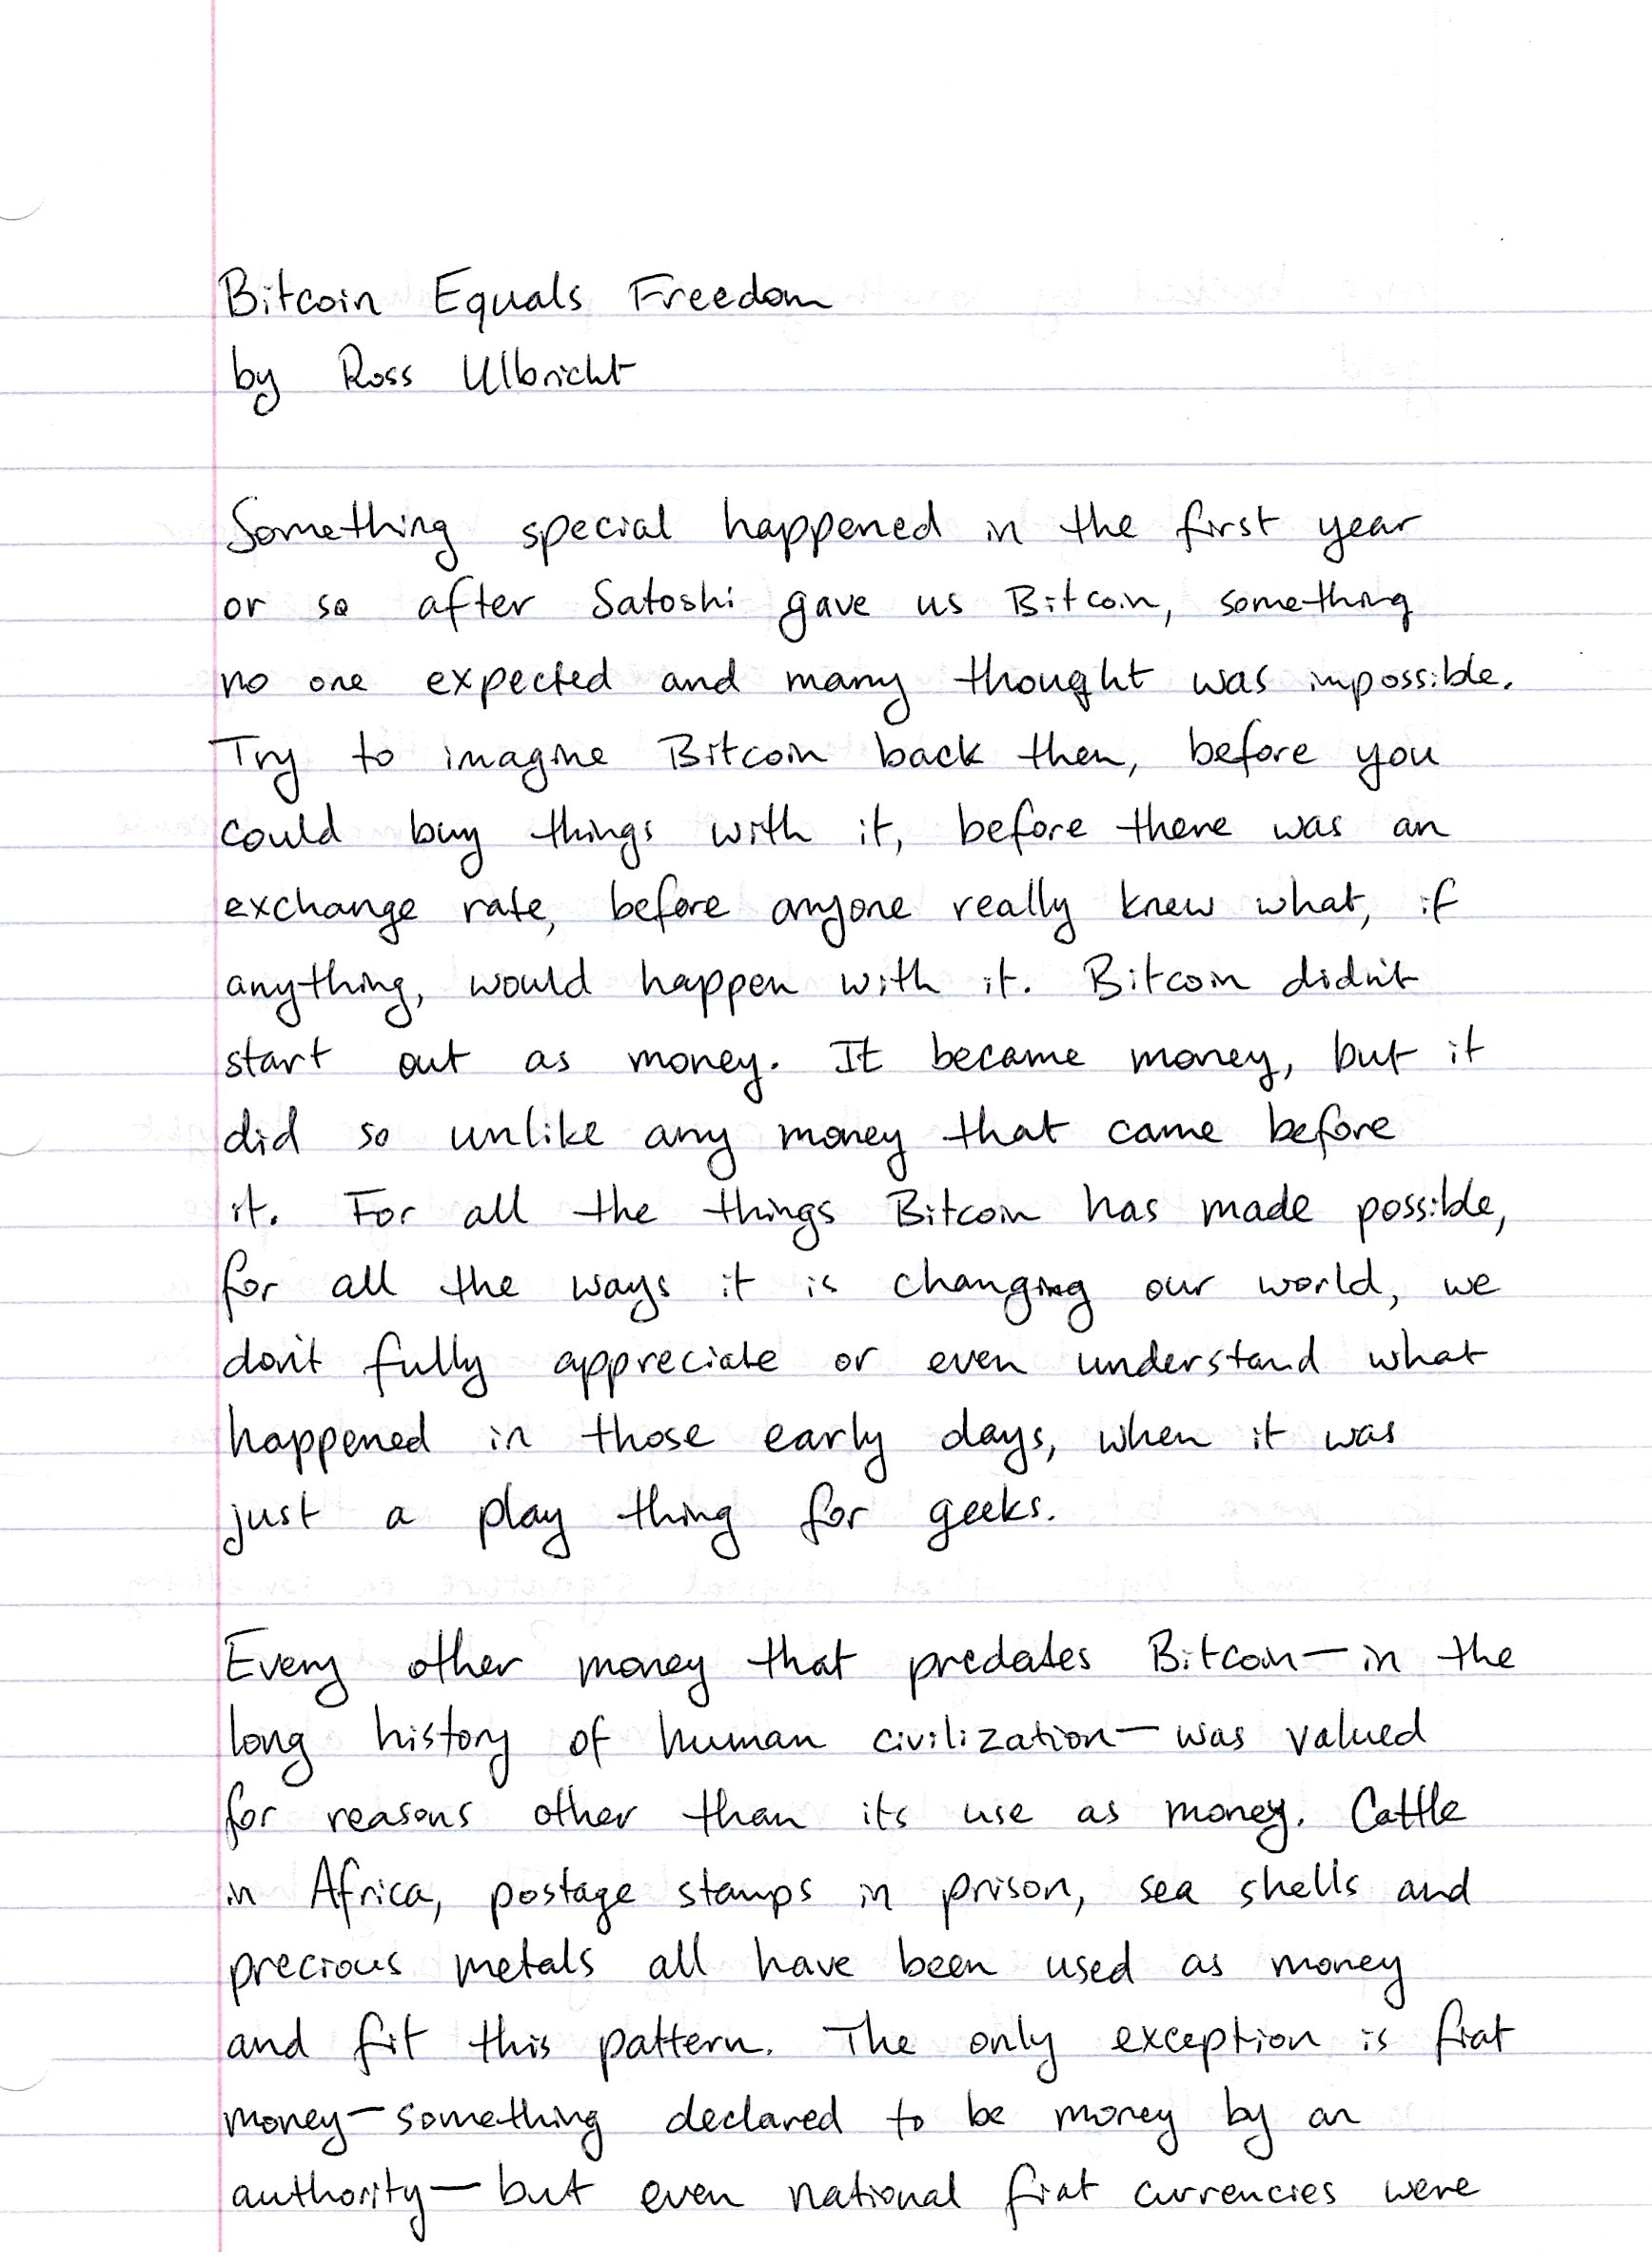 Bitcoin Equals Freedom
by Ross Ulbricht
Something special happened in the first year
or so after Satoshi gave us Bitcoin, something
no one expected and many thought was impossible.
Try to imagine Bitcoin back then, before you
could buy things with it, before there was an
exchange rate, before anyone really knew what, if
anything, would happen with it. Bitcoin didn't
start out as money. It became money, but it
did so unlike any money that came before
it. For all the things Bitcoin has made possible,
for all the ways it is changing our world, we
don't fully appreciate or even understand what
happened in those early days, when it was
just a play thing for geeks.
Every other money that predates Bitcoin—in the
long history of human civilization—was valued
for reasons other than its use as money. Cattle
in Africa, postage stamps in prison, sea shells and
precious metals all have been used as money
and fit this pattern. The only exception is fiat
money—something declared to be money by an
authority—but even national fiat currencies were